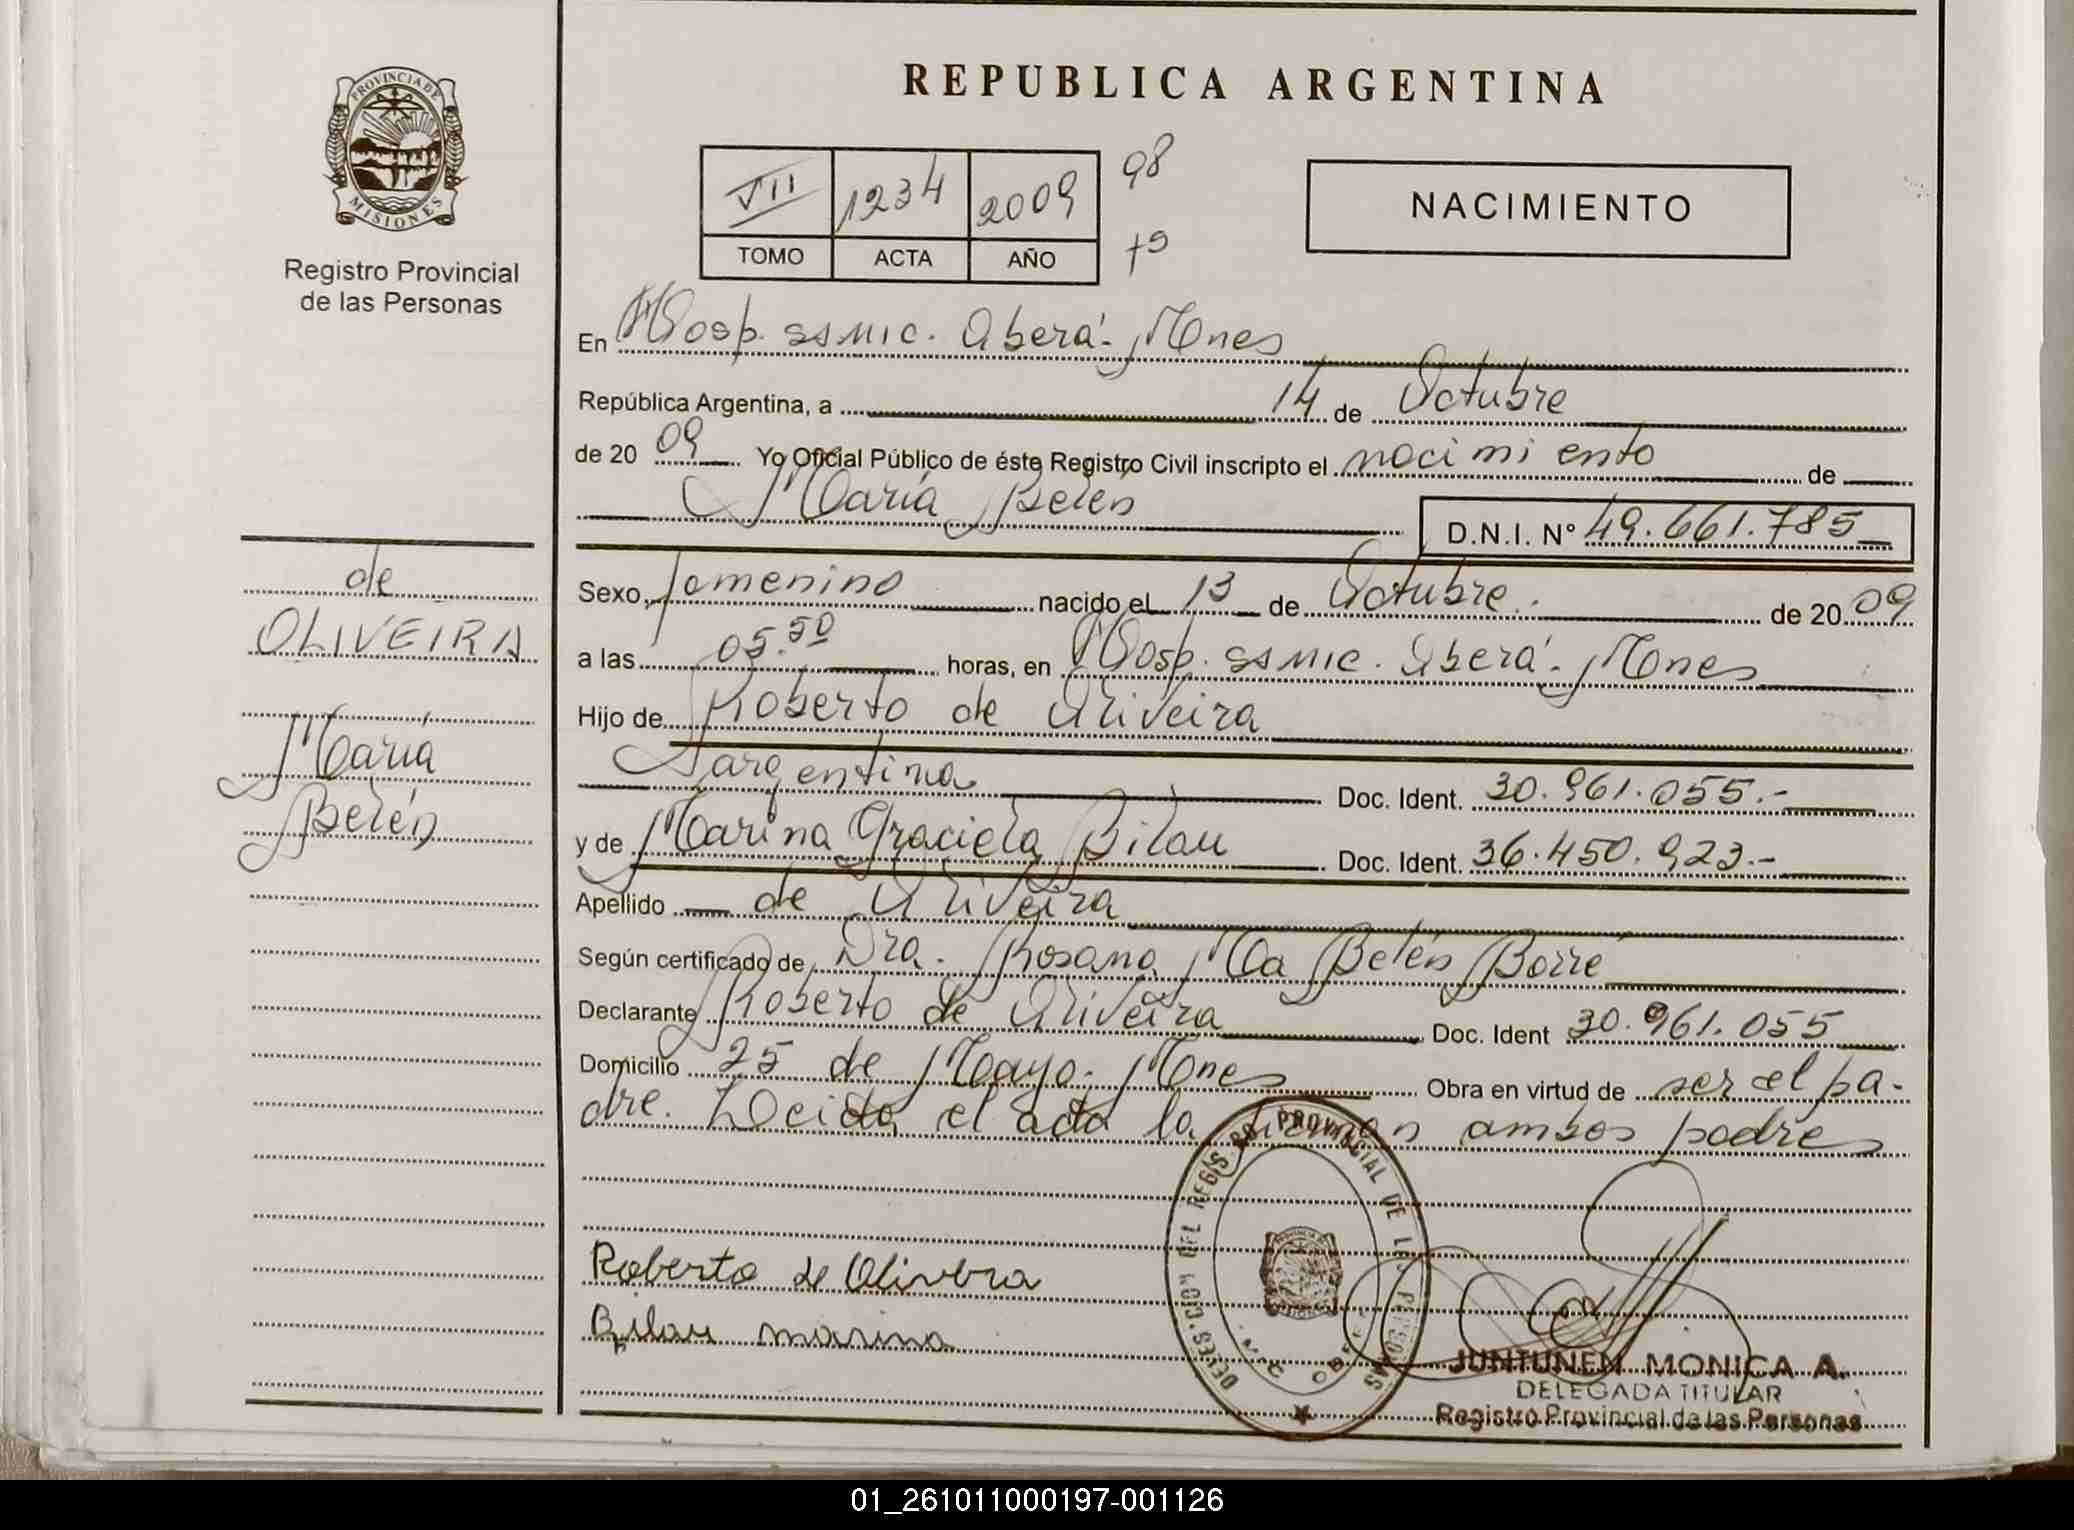 PROVINCIA DE
MISIONES
Registro Provincial
de las Personas
de
OLIVEIRA
María
Belén
REPUBLICA ARGENTINA
VII 1234 2009 98
TOMO ACTA AÑO
NACIMIENTO
En Hosp. SAMIC. Oberá. Mnes
República Argentina, a 14 de Octubre
de 20 09 Yo Oficial Público de éste Registro Civil inscripto el nacimiento de
María Belén D.N.I. Nº 49.661.785
Sexo femenino nacido el 13 de Octubre. de 20 09
a las 05.50 horas, en Hosp. SAMIC. Oberá. Mnes
Hijo de Roberto de Oliveira
Argentina Doc. Ident. 30.961.055.-
y de Marina Graciela Bilau Doc. Ident. 36.450.923.-
Apellido de Oliveira
Según certificado de Dra. Rosana Ma Belén Borré
Declarante Roberto de Oliveira Doc. Ident 30.961.055
Domicilio 25 de Mayo. Mnes Obra en virtud de ser el pa-
dre. Leída el acta la firman ambos padres
Roberto de Olivera
Bilau marina
PROVINCIAL DE LAS PERSONAS
JUNTUNEN MONICA A.
DELEGADA TITULAR
Registro Provincial de las Personas
01_261011000197-001126